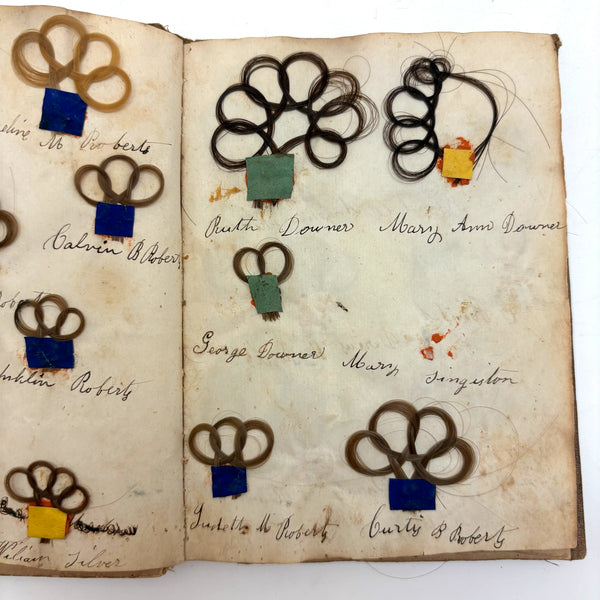 eline M Roberts
Calvin B Roberts
Roberts
nklin Roberts
Wiliam Silver
Ruth Downer
Mary Ann Downer
George Downer
Mary Singston
Judeth M Roberts
Curtis B Roberts